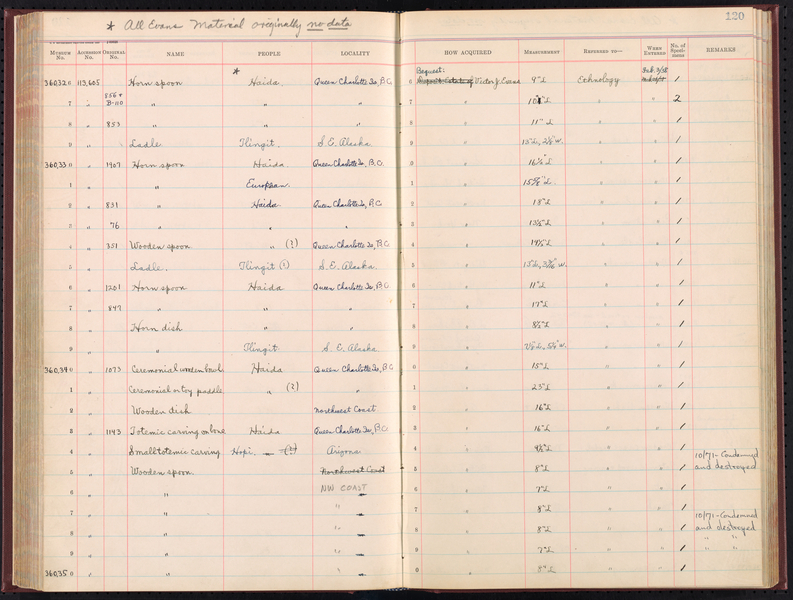 * All Evans Material originally no data
120
MUSEUM No. ACCESSION No. ORIGINAL No. NAME PEOPLE LOCALITY HOW ACQUIRED MEASUREMENT REFERRED TO— WHEN ENTERED No. of Speci- mens REMARKS
*
Bequest:
360320 113,605 Horn spoon Haida Queen Charlotte Is, B.C. 6 Victor J. Evans 9" L Ethnology 1
7 " 856 + B-110 " " " 7 " 2
8 " 853 " " " 8 " 11" L " " 1
9 " Ladle Tlingit S. E. Alaska 9 " " " 1
360,330 " 1907 Horn spoon Haida Queen Charlotte Is, B.C. 0 " " " 1
1 " " European 1 " " " 1
2 " 831 " Haida Queen Charlotte Is, B.C. 2 " 18" L " " 1
3 " 76 " " " 3 " " " 1
4 " 351 Wooden spoon " (?) Queen Charlotte Is, B.C. 4 " " " 1
5 " Ladle. Tlingit (?) S. E. Alaska. 5 " " " 1
6 " 1201 Horn spoon Haida Queen Charlotte Is, B.C. 6 " 11" L " " 1
7 " 847 " " " 7 " 17" L " " 1
8 " Horn dish " " 8 " " " 1
9 " " Tlingit S. E. Alaska 9 " " " 1
360,340 " 1073 Ceremonial wooden bowl Haida Queen Charlotte Is, B.C. 0 " 15" L " " 1
1 " Ceremonial or toy paddle " (?) " 1 " 25" L " " 1
2 " Wooden dish Northwest Coast 2 " 16" L " " 1
3 " 1143 Totemic carving on bone Haida Queen Charlotte Is, B.C. 3 " 16" L " " 1
4 " Small totemic carving Hopi. " (?) Arizona 4 " " " 1 10/71-Condemned
5 " Wooden spoon Northwest Coast 5 " 8" L " " 1 and destroyed
6 " " NW COAST 6 " 7" L " " 1
7 " " " 7 " 8" L " " 1 10/71-Condemned
8 " " " 8 " 8" L " " 1 and destroyed
9 " " " 9 " 7" L " " 1 " "
360,350 " " " 0 " 8" L " " 1